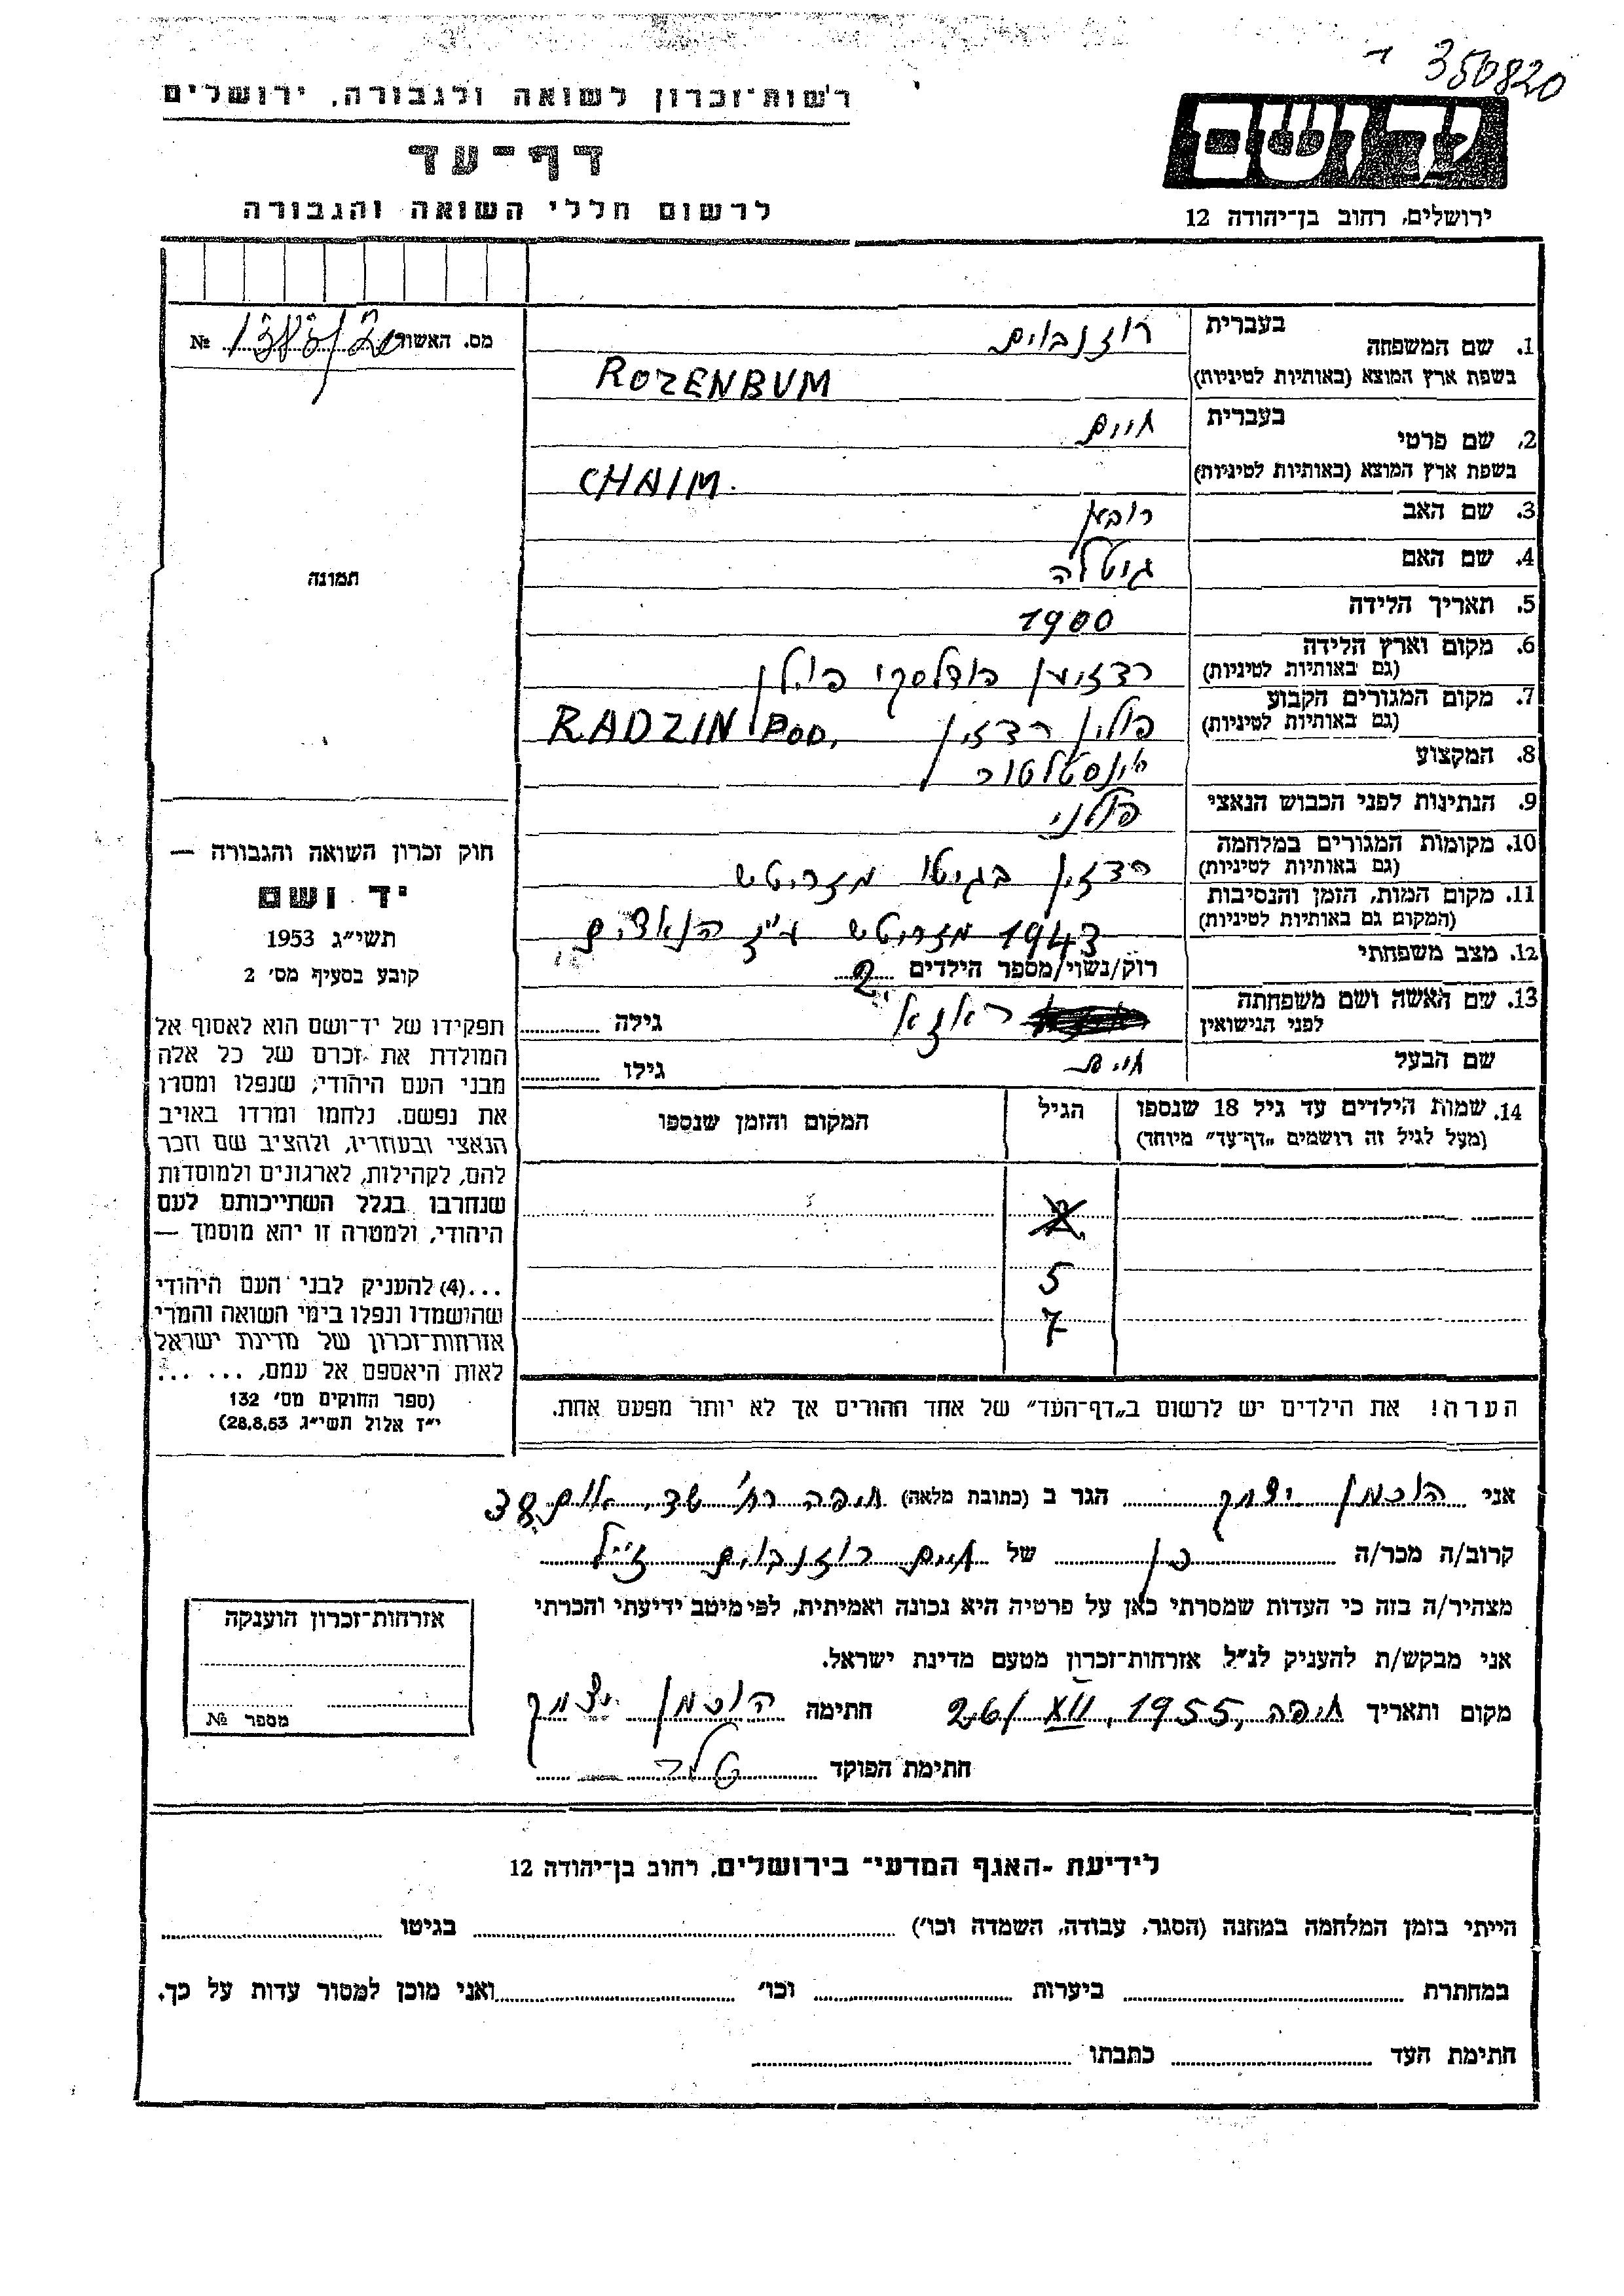 350820
רשות־זכרון לשואה ולגבורה, ירושלים
דף־עד
לרשום חללי השואה והגבורה
יד ושם
ירושלים, רחוב בן־יהודה 12
מס. האשור № 
1. שם המשפחה בעברית רוזנבוים
בשפת ארץ המוצא (באותיות לטיניות) ROZENBUM
2. שם פרטי בעברית חיים
בשפת ארץ המוצא (באותיות לטיניות) CHAIM.
3. שם האב ראובן
4. שם האם גיטלה
5. תאריך הלידה 1900
6. מקום וארץ הלידה
(גם באותיות לטיניות) פודלסקי פולין
7. מקום המגורים הקבוע
(גם באותיות לטיניות) פולין רדזין RADZIN POD.
8. המקצוע אינסטלטור
9. הנתינות לפני הכבוש הנאצי פולני
10. מקומות המגורים במלחמה
(גם באותיות לטיניות) רדזין בגיטו מזריטש
11. מקום המות, הזמן והנסיבות
(המקום גם באותיות לטיניות) 1943 מזריטש ע״י הנאצים
12. מצב משפחתי רוק/נשוי/מספר הילדים 2
13. שם האשה ושם משפחתה
לפני הנישואין גילה
שם הבעל חיים גילו
14. שמות הילדים עד גיל 18 שנספו הגיל המקום והזמן שנספו
(מעל לגיל זה רושמים „דף־עד" מיוחד)
2
5
7
הערה! את הילדים יש לרשום ב„דף־העד" של אחד ההורים אך לא יותר מפעם אחת.
תמונה
חוק זכרון השואה והגבורה —
יד ושם
תשי״ג 1953
קובע בסעיף מס׳ 2
תפקידו של יד־ושם הוא לאסוף אל
המולדת את זכרם של כל אלה
מבני העם היהודי, שנפלו ומסרו
את נפשם. נלחמו ומרדו באויב
הנאצי ובעוזריו, ולהציב שם וזכר
להם, לקהילות, לארגונים ולמוסדות
שנחרבו בגלל השתייכותם לעם
היהודי, ולמטרה זו יהא מוסמך —
...(4) להעניק לבני העם היהודי
שהושמדו ונפלו בימי השואה והמרי
אזרחות־זכרון של מדינת ישראל
לאות היאספם אל עמם, ... ...
(ספר החוקים מס׳ 132
י״ז אלול תשי״ג 28.8.53)
אני הוכמן יצחק הגר ב (כתובת מלאה) חיפה רח׳
קרוב/ה מכר/ה של חיים רוזנבוים ז״ל
מצהיר/ה בזה כי העדות שמסרתי כאן על פרטיה היא נכונה ואמיתית, לפי מיטב ידיעתי והכרתי
אני מבקש/ת להעניק לנ״ל אזרחות־זכרון מטעם מדינת ישראל.
מקום ותאריך חיפה, 26/XII.1955 חתימה הוכמן יצחק
חתימת הפוקד
אזרחות־זכרון הוענקה
מספר №
לידיעת ־האגף המדעי־ בירושלים, רחוב בן־יהודה 12
הייתי בזמן המלחמה במחנה (הסגר, עבודה, השמדה וכו׳) בגיטו
במחתרת ביערות וכו׳ ואני מוכן למסור עדות על כך.
חתימת העד כתבתו